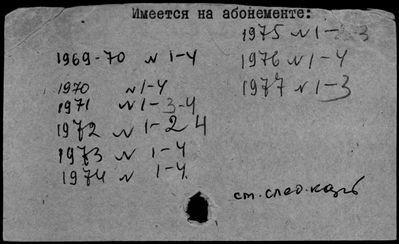 Имеется на абонементе:
1969-70 N 1-4
1970 N 1-4
1971 N 1-3-4
1972 N 1-2 4
1973 N 1-4
1974 N 1-4
1975 N 1-3
1976 N 1-4
1977 N 1-3
см. след.